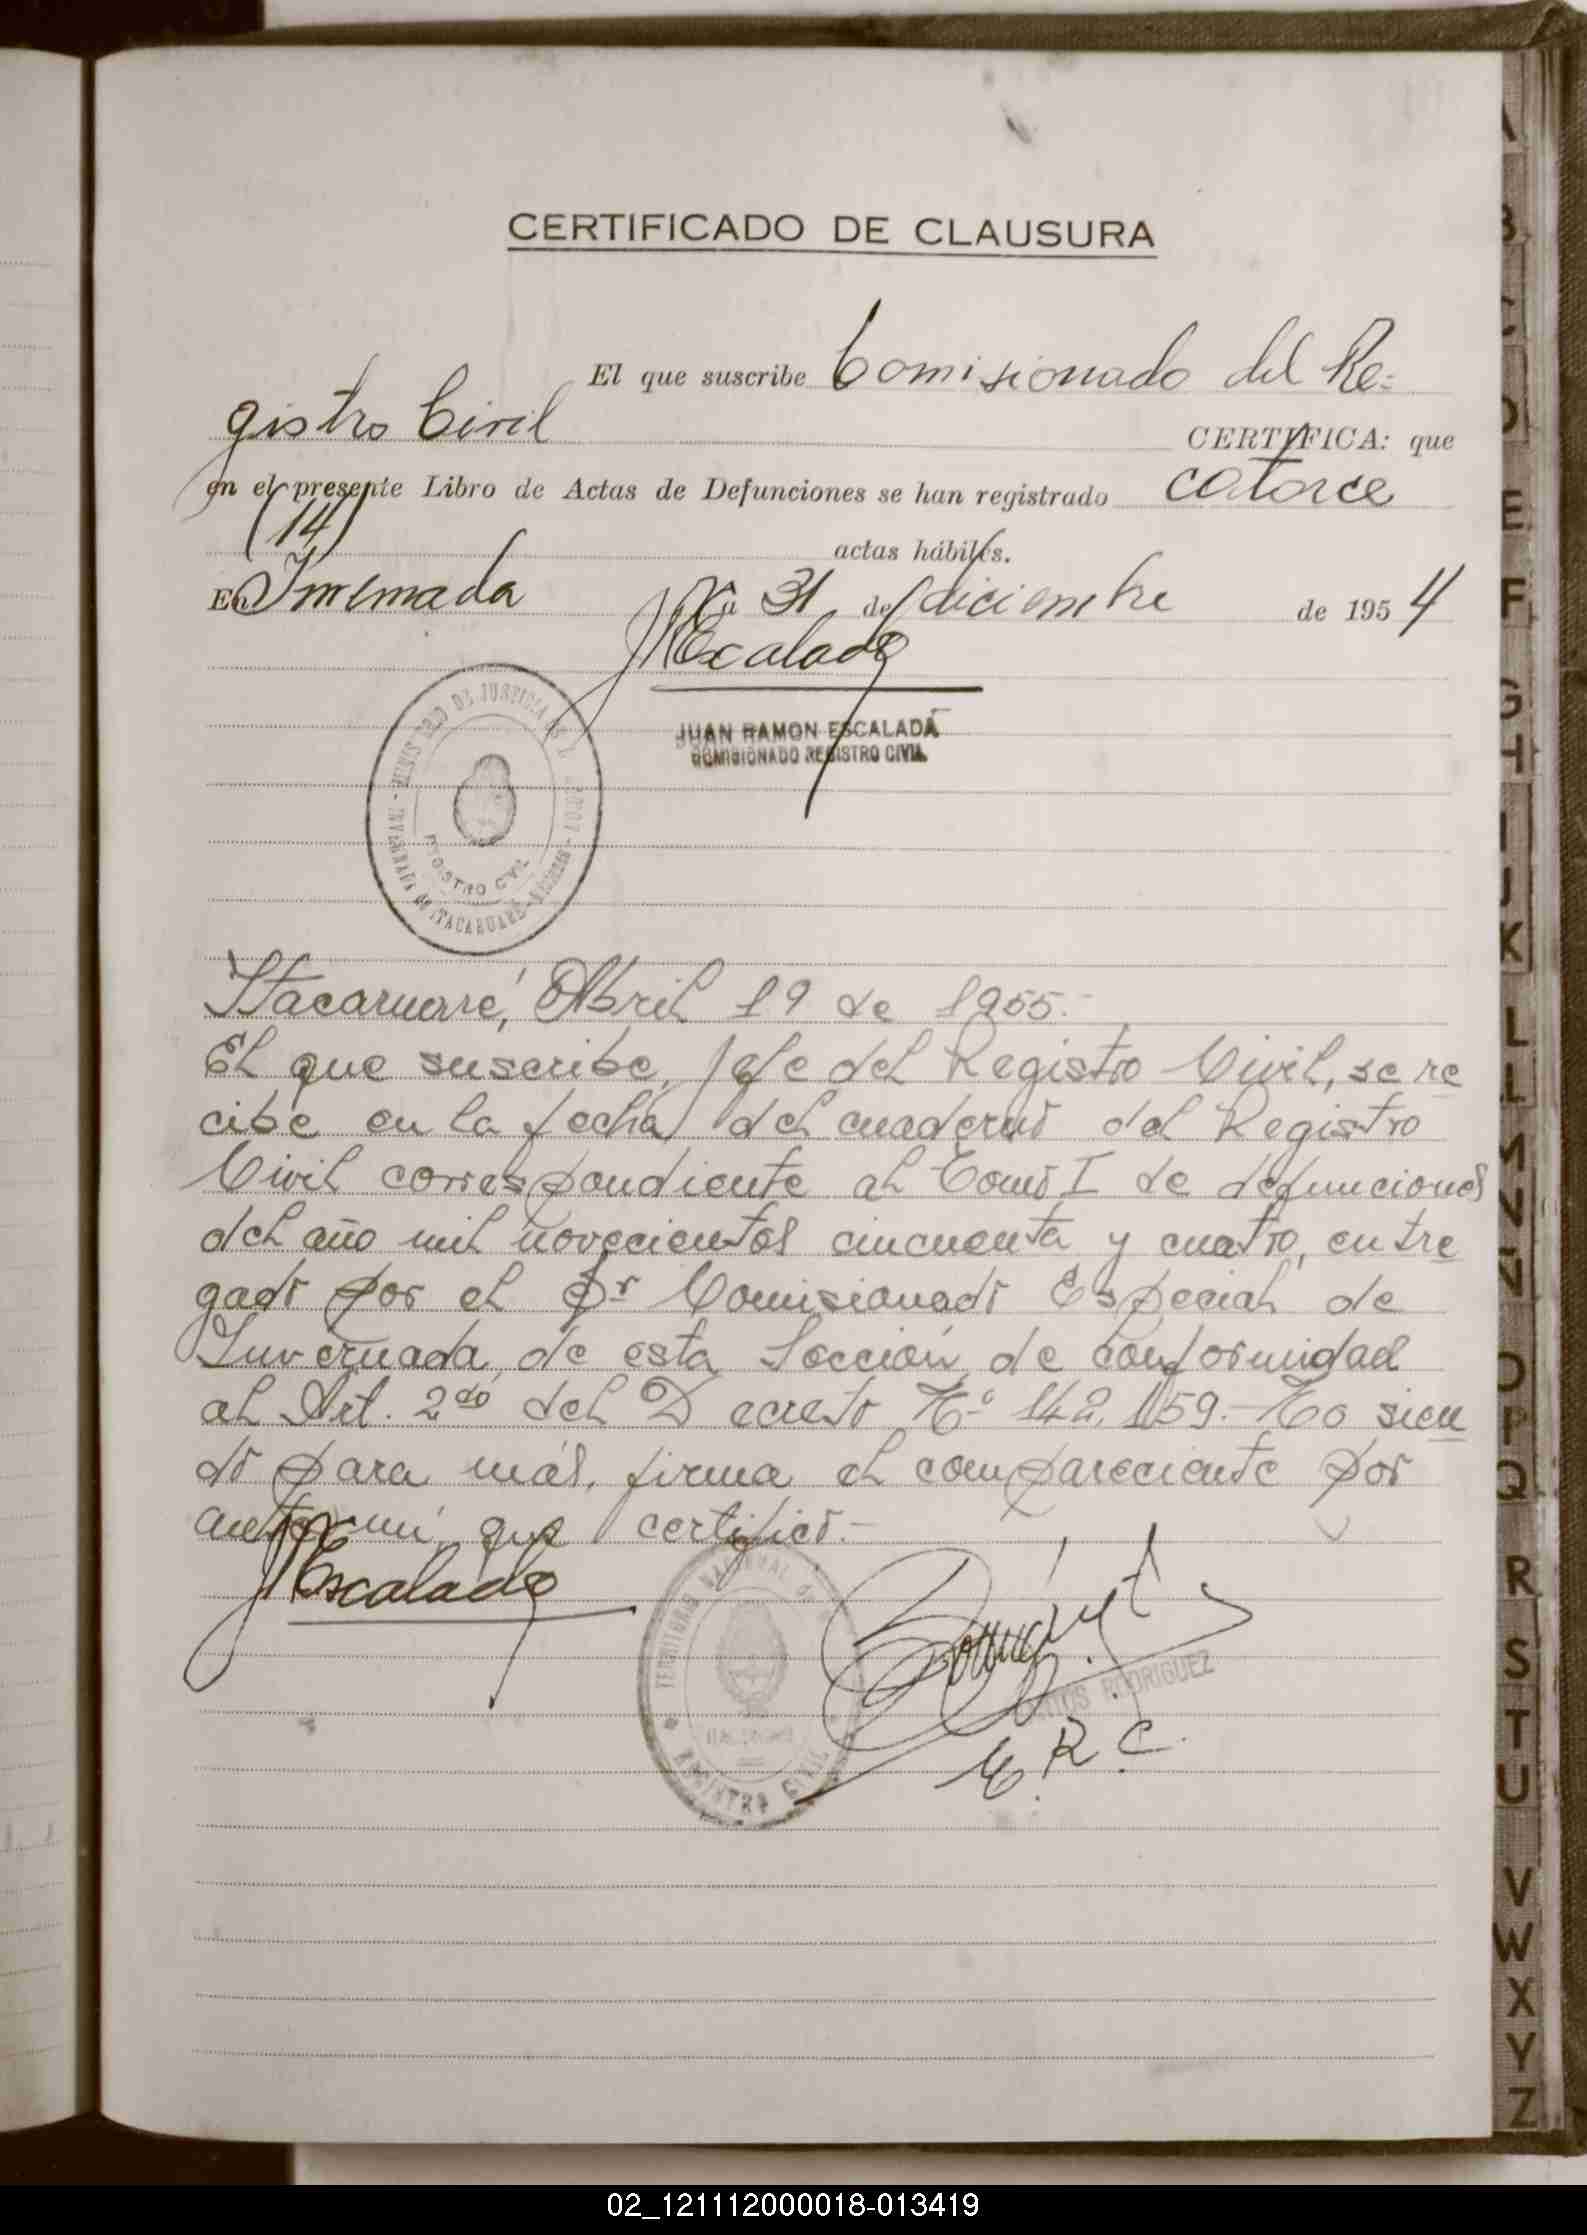 CERTIFICADO DE CLAUSURA
El que suscribe Comisionado del Re-
gistro Civil CERTIFICA: que
en el presente Libro de Actas de Defunciones se han registrado catorce
(14) actas hábiles.
En Invernada a 31 de diciembre de 1954
JREscalada
JUAN RAMON ESCALADA
COMISIONADO REGISTRO CIVIL
MINISTERIO DE JUSTICIA
REGISTRO CIVIL
INVERNADA de ITACARUARÉ - MISIONES
Itacaruaré, Abril 19 de 1955.-
El que suscribe, Jefe del Registro Civil, se re
cibe en la fecha del cuaderno del Registro
Civil correspondiente al Tomo I de defunciones
del año mil novecientos cincuenta y cuatro, entre
gado por el Sr Comisionado Especial de
Invernada de esta Sección de conformidad
al Art. 2do del Decreto Nº 142.159.- No sien
do para más, firma el compareciente por
ante mi, que certifico.-
JREscalada
TERRITORIO NACIONAL de
REGISTRO CIVIL
RODRIGUEZ
E.R.C.
A
B
C
D
E
F
G
H
I
J
K
L
LL
M
N
Ñ
O
P
Q
R
S
T
U
V
W
X
Y
Z
02_121112000018-013419